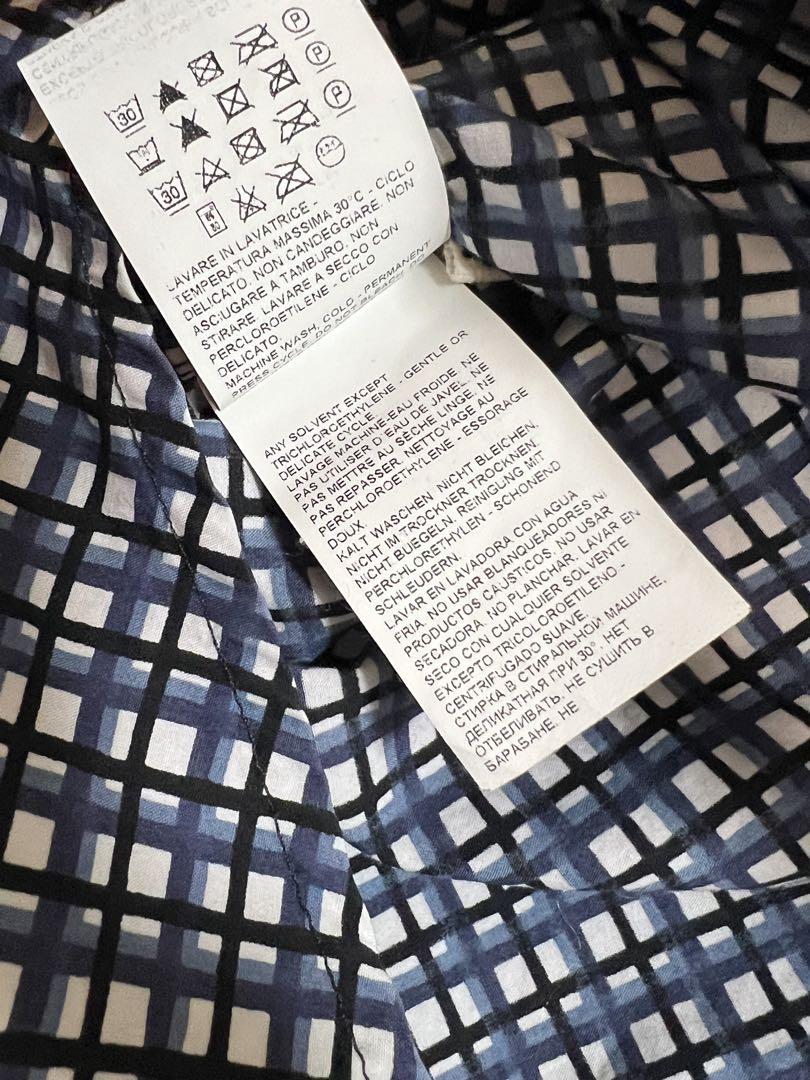 30
30
LAVARE IN LAVATRICE -
TEMPERATURA MASSIMA 30°C - CICLO
DELICATO. NON CANDEGGIARE. NON
ASCIUGARE A TAMBURO. NON
STIRARE. LAVARE A SECCO CON
PERCLOROETILENE - CICLO
DELICATO.
MACHINE WASH, COLD - PERMANENT
PRESS CYCLE. DO NOT BLEACH. DO
ANY SOLVENT EXCEPT
TRICHLOROETHYLENE - GENTLE OR
DELICATE CYCLE.
LAVAGE MACHINE-EAU FROIDE. NE
PAS UTILISER D'EAU DE JAVEL. NE
PAS METTRE AU SÈCHE LINGE. NE
PAS REPASSER. NETTOYAGE AU
PERCHLOROETHYLENE - ESSORAGE
DOUX.
KALT WASCHEN NICHT BLEICHEN.
NICHT IM TROCKNER TROCKNEN.
NICHT BUEGELN. REINIGUNG MIT
PERCHLORETHYLEN - SCHONEND
SCHLEUDERN.
LAVAR EN LAVADORA CON AGUA
FRIA. NO USAR BLANQUEADORES NI
PRODUCTOS CÁUSTICOS. NO USAR
SECADORA. NO PLANCHAR. LAVAR EN
SECO CON CUALQUIER SOLVENTE
EXCEPTO TRICOLOROETILENO -
CENTRIFUGADO SUAVE.
СТИРКА В СТИРАЛЬНОЙ МАШИНЕ.
ДЕЛИКАТНАЯ ПРИ 30°. НЕТ
ОТБЕЛИВАТЬ. НЕ СУШИТЬ В
БАРАБАНЕ. НЕ